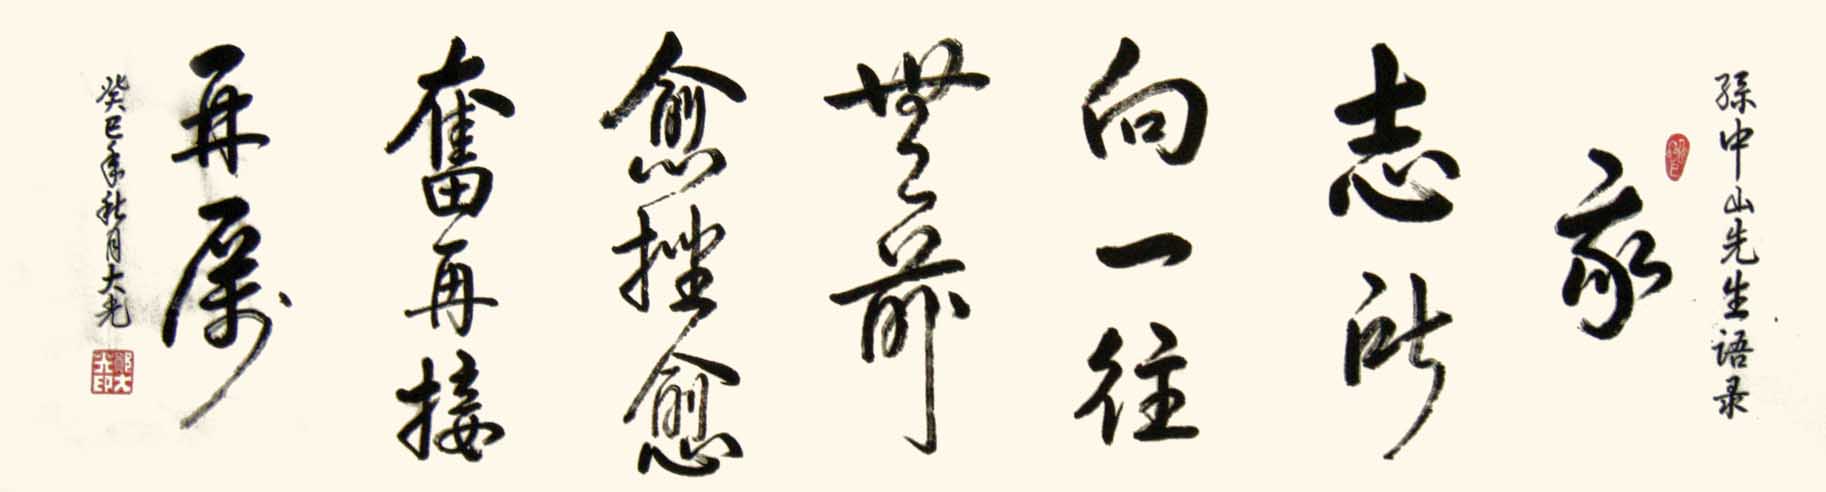 孫中山先生语录
我
志所
向一往
無前
愈挫愈
奮再接
再厲
癸巳年秋月大光
鄭大光印